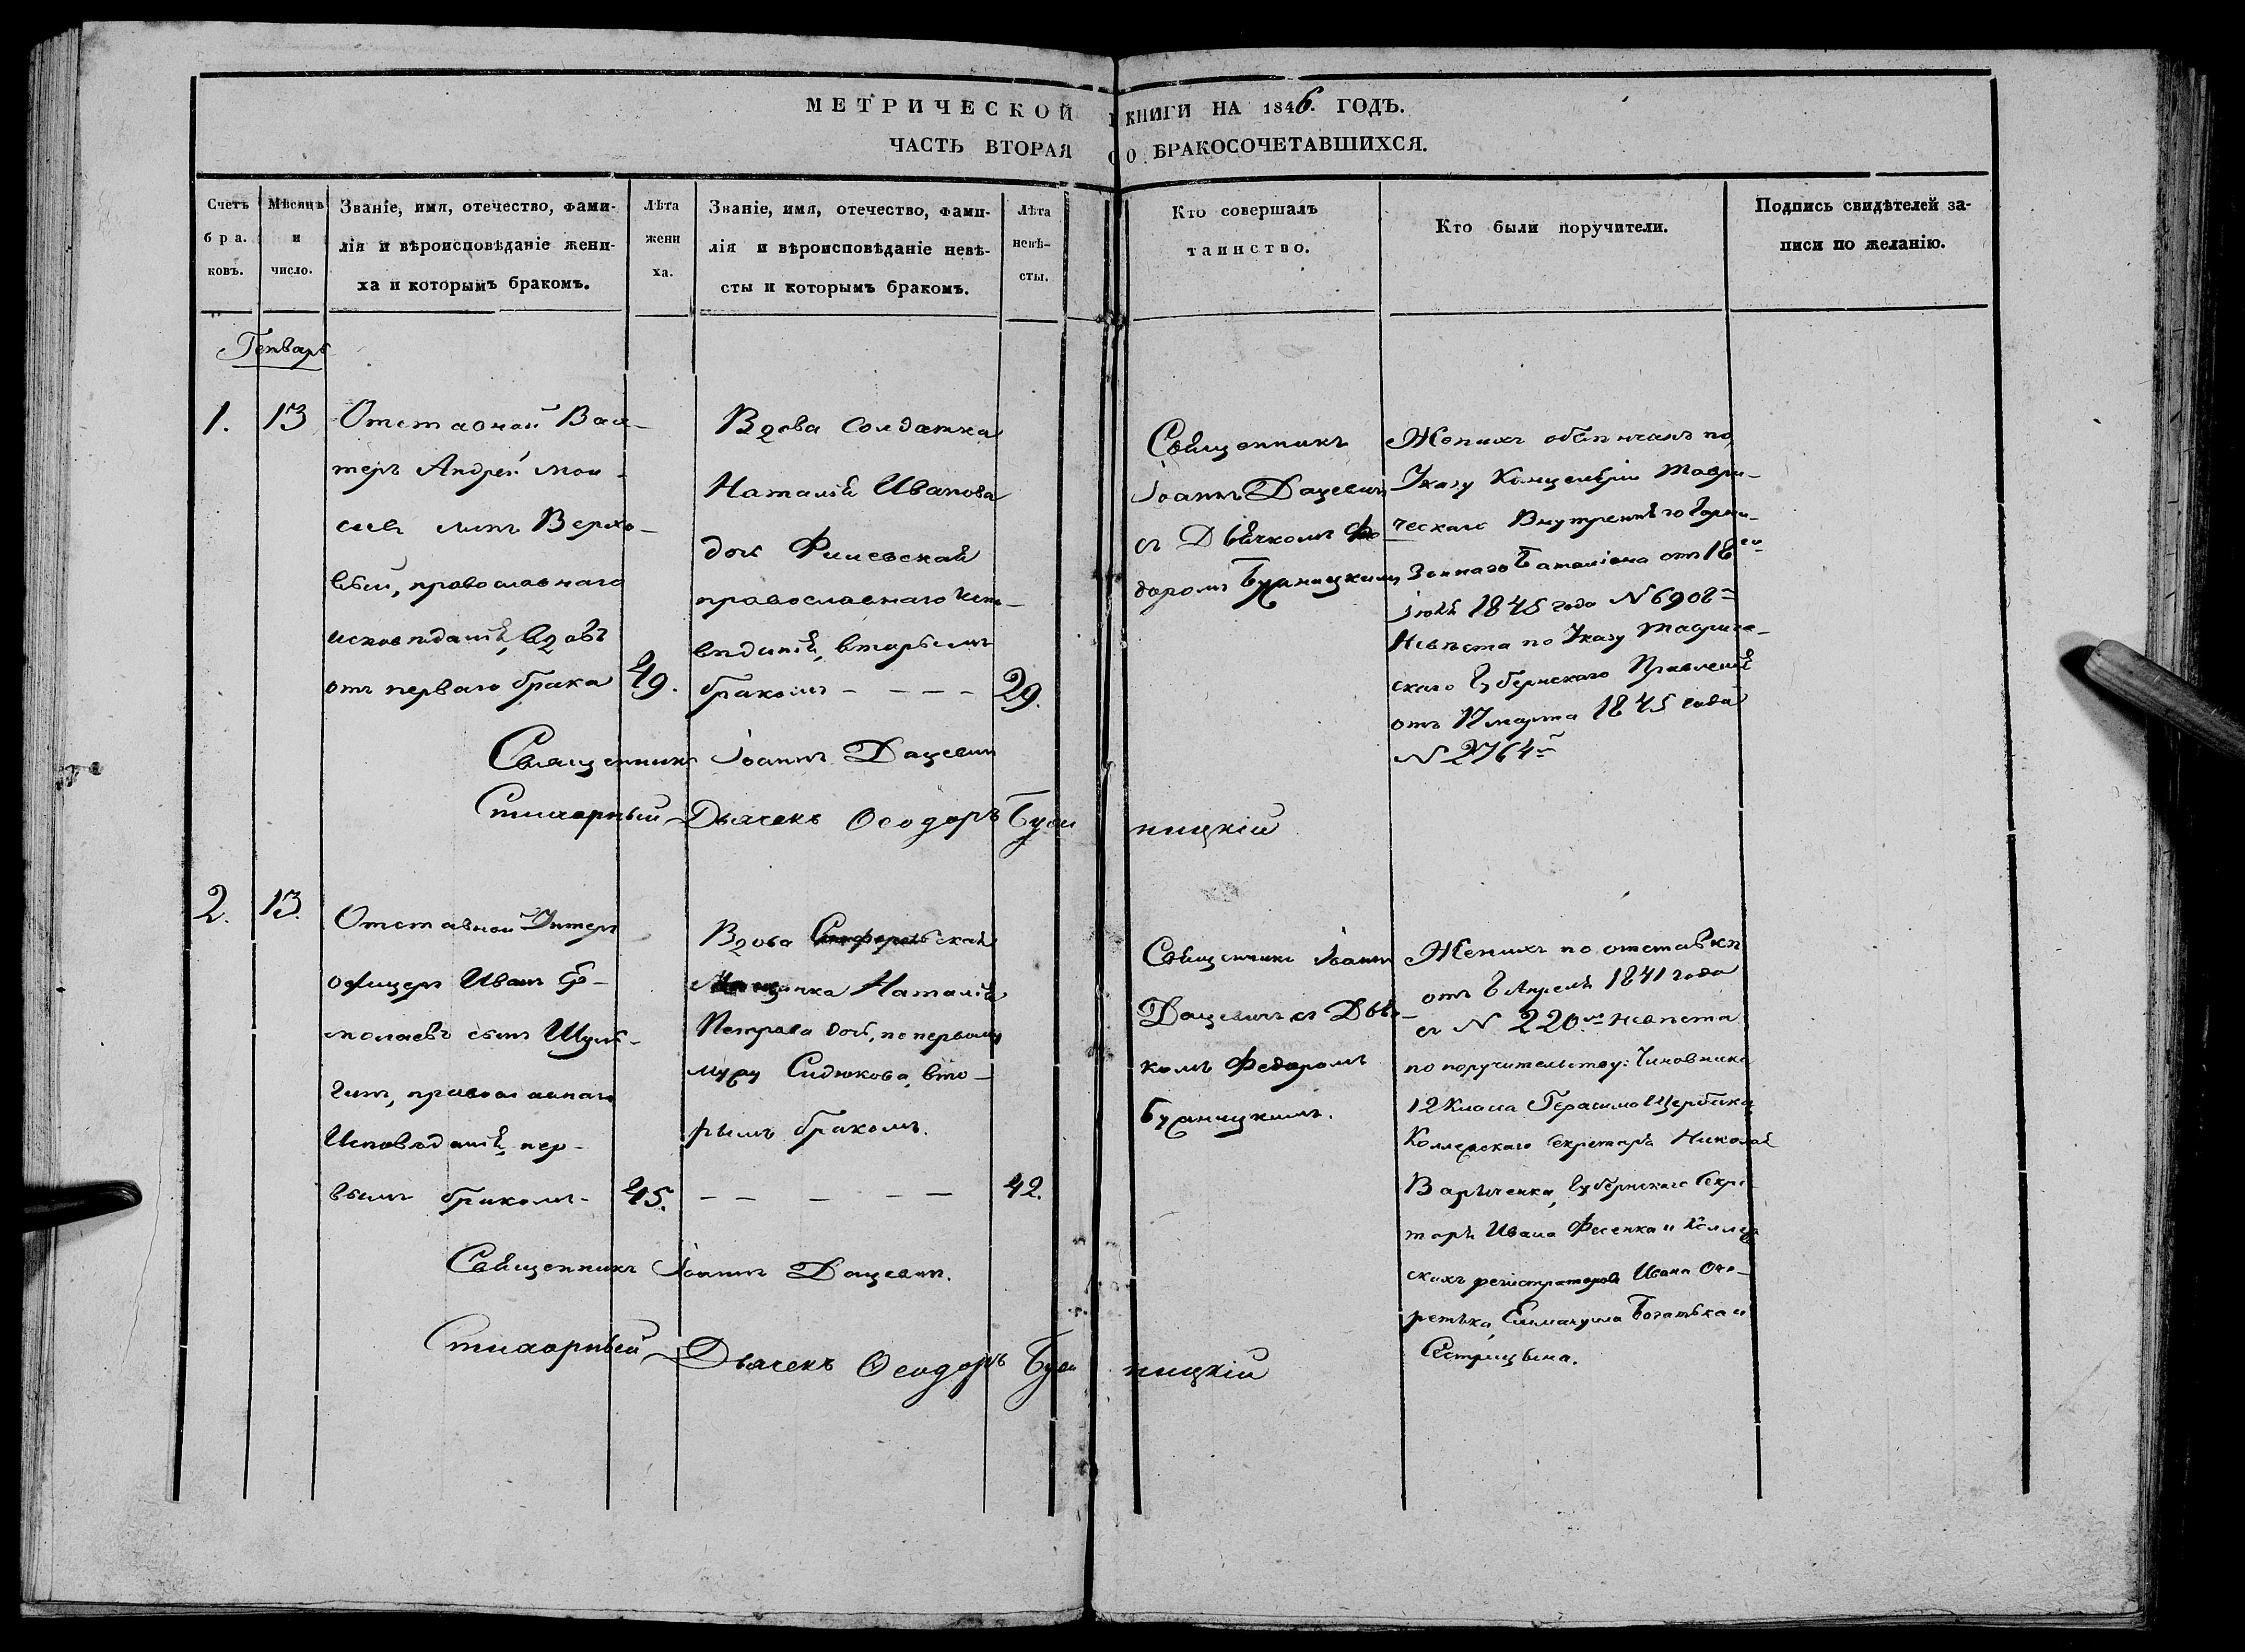 МЕТРИЧЕСКОЙ КНИГИ НА 1846. ГОДЪ.
ЧАСТЬ ВТОРАЯ О БРАКОСОЧЕТАВШИХСЯ.
Счетъ
бра-
ковъ.
Мѣсяцъ
и
число.
Званіе, имя, отечество, фами-
лія и вѣроисповѣданіе жени-
ха и которымъ бракомъ.
Лѣта
жени
ха.
Званіе, имя, отечество, фами-
лія и вѣроисповѣданіе невѣ-
сты и которымъ бракомъ.
Лѣта
невѣ-
сты.
Кто совершалъ
таинство.
Кто были поручители.
Подпись свидѣтелей за-
писи по желанію.
Генварь
1.
13
Отставной
Андрей Мои-
сѣевъ сынъ Верхо-
вый, православнаго
исповѣданія, вдовъ
отъ перваго брака
49.
Вдова Солдатка
Наталія Иванова
дочь
православнаго испо-
вѣданія, вторымъ
бракомъ - - - -
29.
Священникъ
Іоаннъ Дацевичъ
съ Дьячкомъ Фео
доромъ
Женихъ обвѣнчанъ по
Указу Канцеляріи Таври-
ческаго Внутренняго Гарни-
зоннаго Баталіона отъ 18
1845 года N 6908
Невѣста по Указу Тавриче-
скаго Губернскаго Правленія
отъ 17 марта 1845 года
N 2764
Священникъ Іоаннъ Дацевич
Стихарный Дьячекъ Ѳеодоръ
ницкій
2.
13.
Отставной Унтеръ
офицеръ Иванъ Ер-
молаевъ сынъ Шуль-
гинъ, православнаго
Исповѣданія, пер-
вымъ бракомъ-
45.
Вдова Симферопольская
Мѣщанка Наталія
Петрова дочь, по первому
мужу Сидюкова, вто-
рымъ бракомъ.
- - - - -
42.
Священникъ Іоаннъ
Дацевичъ съ Дьяч-
комъ Федоромъ
Женихъ по отставкѣ
отъ 6 Апрѣля 1841 года
съ N 220 невѣста
по поручительству: Чиновника
12 Класса Герасима Щербака
Коллежскаго Секретаря Николая
Губернскаго Секре
таря Ивана Фесенка и Коллеж
скихъ регистраторовъ Ивана
Еммануила Богатька и
Священникъ Іоаннъ Дацевич.
Стихарный Дьячекъ Ѳеодоръ
ницкій